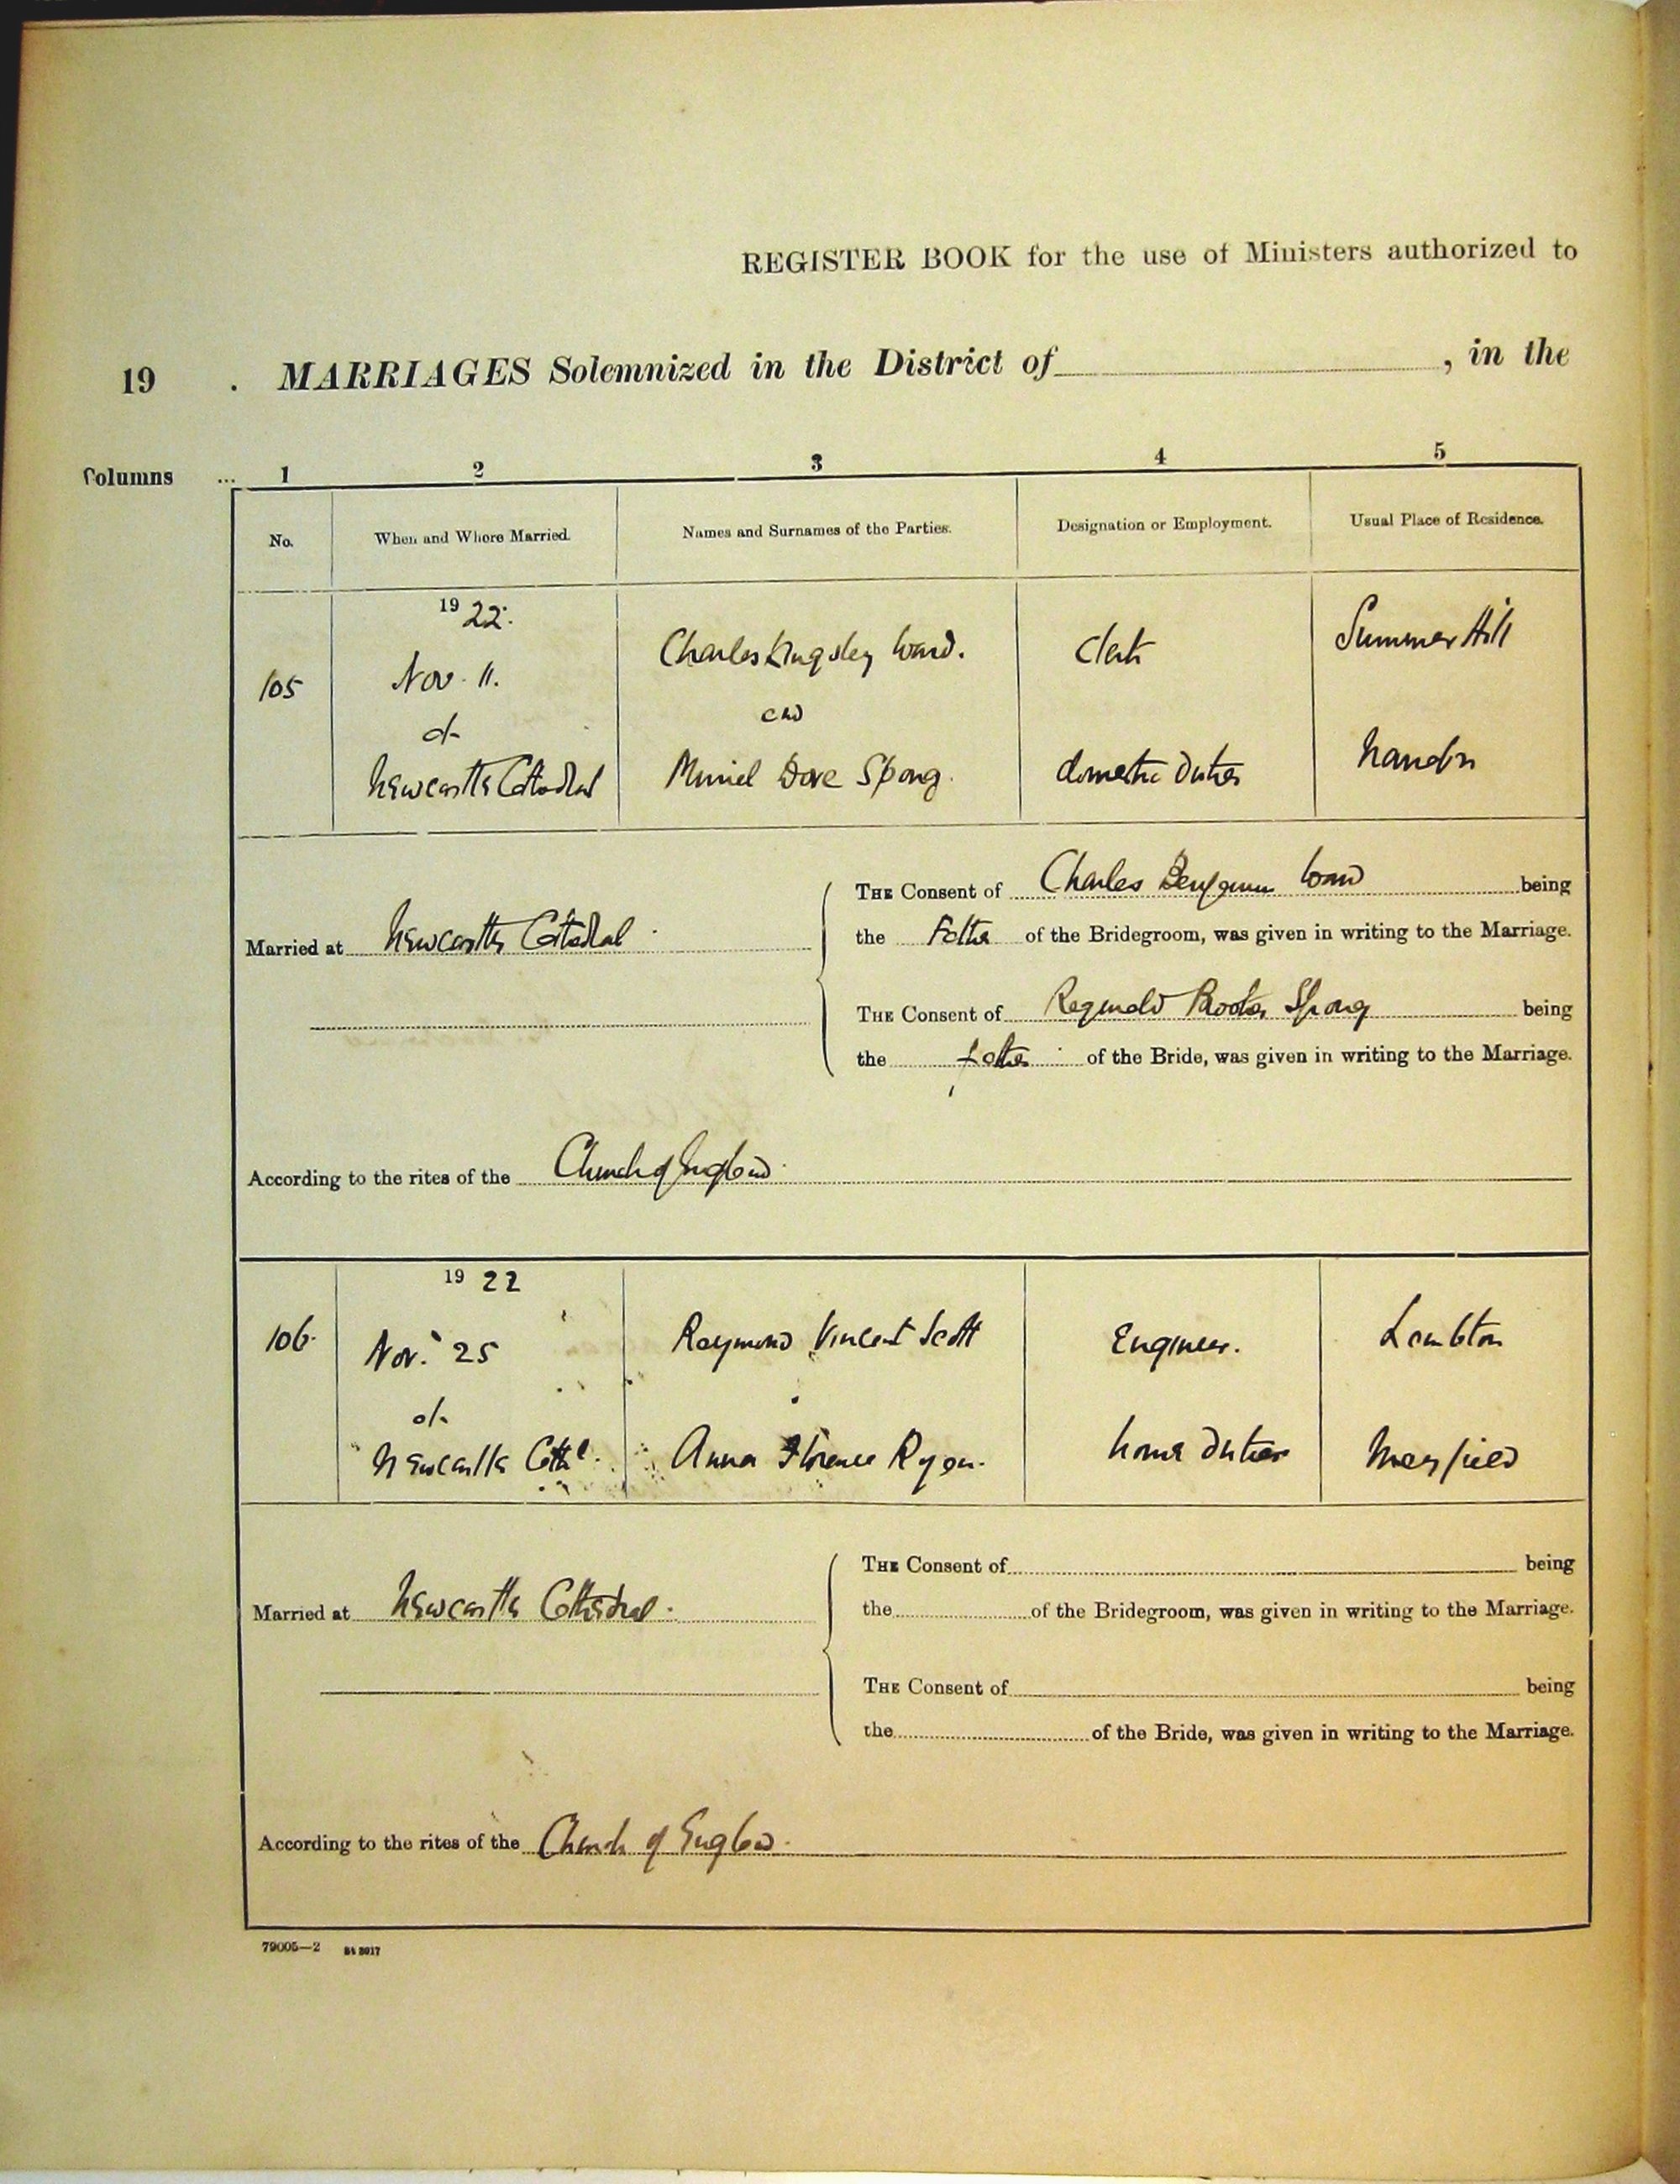 REGISTER BOOK for the use of Ministers authorized to
19 . MARRIAGES Solemnized in the District of , in the
Columns ... 1 2 3 4 5
No. When and Where Married. Names and Surnames of the Parties. Designation or Employment. Usual Place of Residence.
1922.
Charles Kingsley Ward. Clerk Summer Hill
105 Nov. 11.
and
at
Newcastle Cathedral Muriel Dove Spong. domestic Duties
THE Consent of Charles Benjamin Ward being
Married at Newcastle Cathedral.
the Father of the Bridegroom, was given in writing to the Marriage.
THE Consent of Reginald Spong being
the father of the Bride, was given in writing to the Marriage.
According to the rites of the Church of England.
1922
106. Nov. 25 Raymond Vincent Scott Engineer. Lambton
at
Newcastle Cathl. Anna Florence Ryan. home Duties Mayfield
THE Consent of being
Married at Newcastle Cathedral.
the of the Bridegroom, was given in writing to the Marriage.
THE Consent of being
the of the Bride, was given in writing to the Marriage.
According to the rites of the Church of England.
79005—2